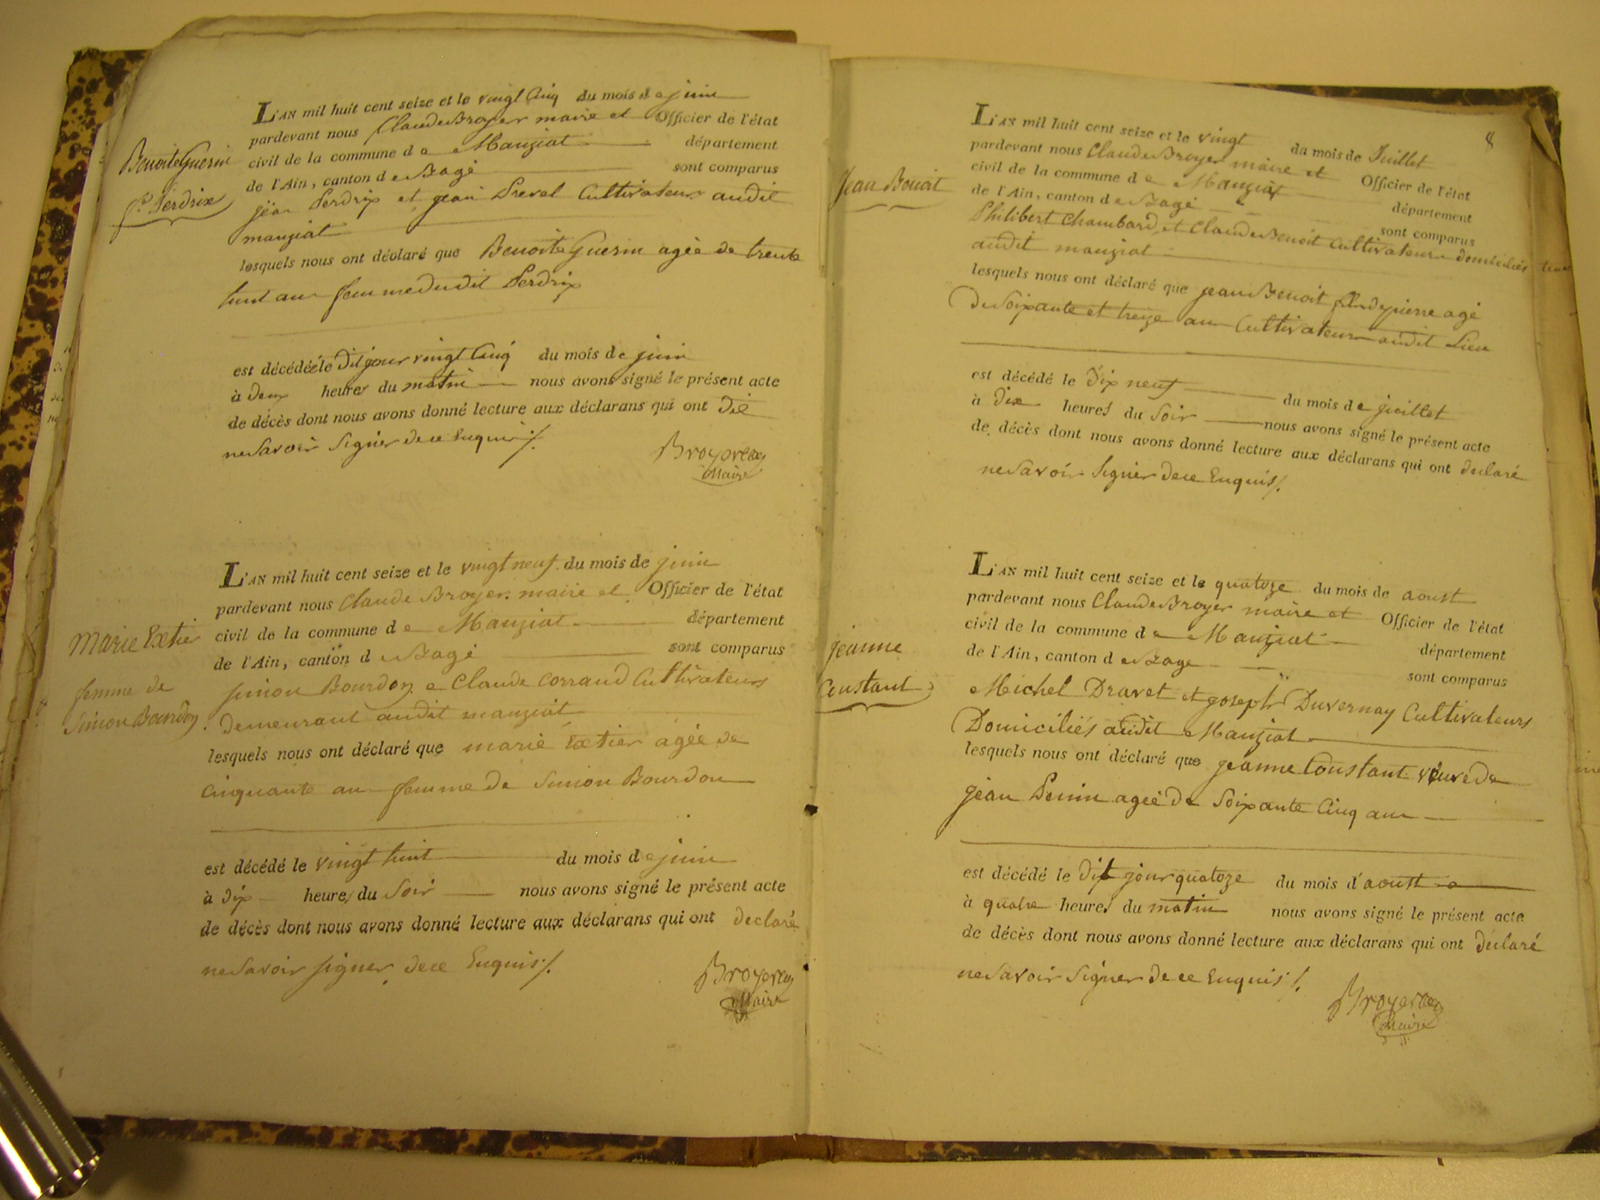 Benoite Guerin
fe Perdrix
L'AN mil huit cent seize et le vingt Cinq du mois de juin
pardevant nous Claude Broyer maire et Officier de l'état
civil de la commune de Manziat département
de l'Ain, canton de Bagé sont comparus
jean Perdrix et jean Prevel Cultivateurs audit
manziat
lesquels nous ont déclaré que Benoite Guerin agée de trente
huit an femme dudit Perdrix
est décédée le dit jour vingt Cinq du mois de juin
à deux heures du matin nous avons signé le présent acte
de décès dont nous avons donné lecture aux déclarans qui ont dit
ne Savoir Signer de ce Enquis ⁒
Broyer
Maire
Marie Extier
femme de
Simon Bourdon
L'AN mil huit cent seize et le vingt neuf du mois de juin
pardevant nous Claude Broyer maire et Officier de l'état
civil de la commune de Manziat département
de l'Ain, canton de Bagé sont comparus
Simon Bourdon e Claude Corraud Cultivateurs
demeurant audit manziat
lesquels nous ont déclaré que marie Extier agée de
cinquante an femme de Simon Bourdon
est décédé le vingt huit du mois de juin
à dix heures du Soir nous avons signé le présent acte
de décès dont nous avons donné lecture aux déclarans qui ont declaré
ne Savoir signer de ce Enquis ⁒
Broyer
Maire
8
Jean Benoit
L'AN mil huit cent seize et le vingt du mois de Juillet
pardevant nous Claude Broyer maire et Officier de l'état
civil de la commune de Manziat département
de l'Ain, canton de Bagé sont comparus
Philibert Chambard et Claude Benoit Cultivateurs domiciliés
audit manziat
lesquels nous ont déclaré que jean Benoit fils de pierre agé
de Soixante et treize an Cultivateur audit Lieu
est décédé le Dix neuf du mois de juillet
à dix heures du Soir nous avons signé le présent acte
de décès dont nous avons donné lecture aux déclarans qui ont declaré
ne Savoir Signer de ce Enquis ⁒
jeanne
Constant
L'AN mil huit cent seize et le quatoze du mois de aoust
pardevant nous Claude Broyer maire et Officier de l'état
civil de la commune de Manziat département
de l'Ain, canton de Bagé sont comparus
Michel Dravet et joseph Duvernay Cultivateurs
Domiciliés audit Manziat
lesquels nous ont déclaré que jeanne Constant veuve de
jean Penin agée de Soixante Cinq an
est décédé le dit jour quatoze du mois d'aoust
à quatre heures du matin nous avons signé le présent acte
de décès dont nous avons donné lecture aux déclarans qui ont declaré
ne Savoir Signer de ce Enquis ⁒
Broyer
Maire